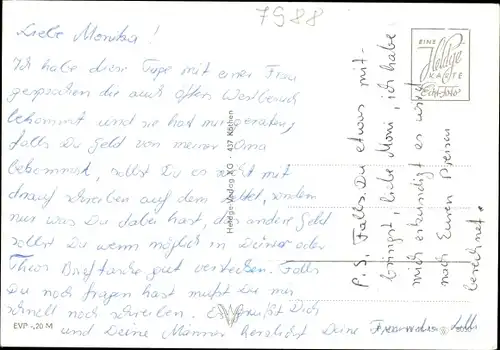 7988
Liebe Monika!
Ich habe diese Tage mit einer Frau
gesprochen die auch öfters Westbesuch
bekommt und sie hat mir geraten,
falls Du Geld von meiner Oma
bekommst, sollst Du es nicht mit
drauf schreiben auf dem Zettel, sondern
nur was Du dabei hast, das andere Geld
sollst Du wenn möglich in Deiner oder
Theos Brieftasche gut verstecken. Falls
Du noch fragen hast mußt Du mir
schnell noch schreiben. Es grüßt Dich
und Deine Männer herzlichst Deine
P.S. Falls Du etwas mit-
bringst, liebe Moni, ich habe
mich erkundigt es wird
nach Euren Preisen
berechnet.
EINE
Heldge
KARTE
Echt-Foto
Heldge-Verlag KG · 437 Köthen
EVP -,20 M